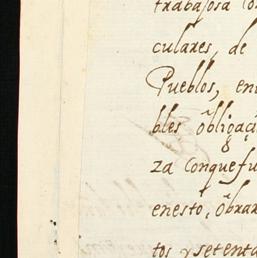 trabajosa co
culares, de
Pueblos, en
bles õbligaçi
za conquefu
enestó, õbrar
tos ysetenta